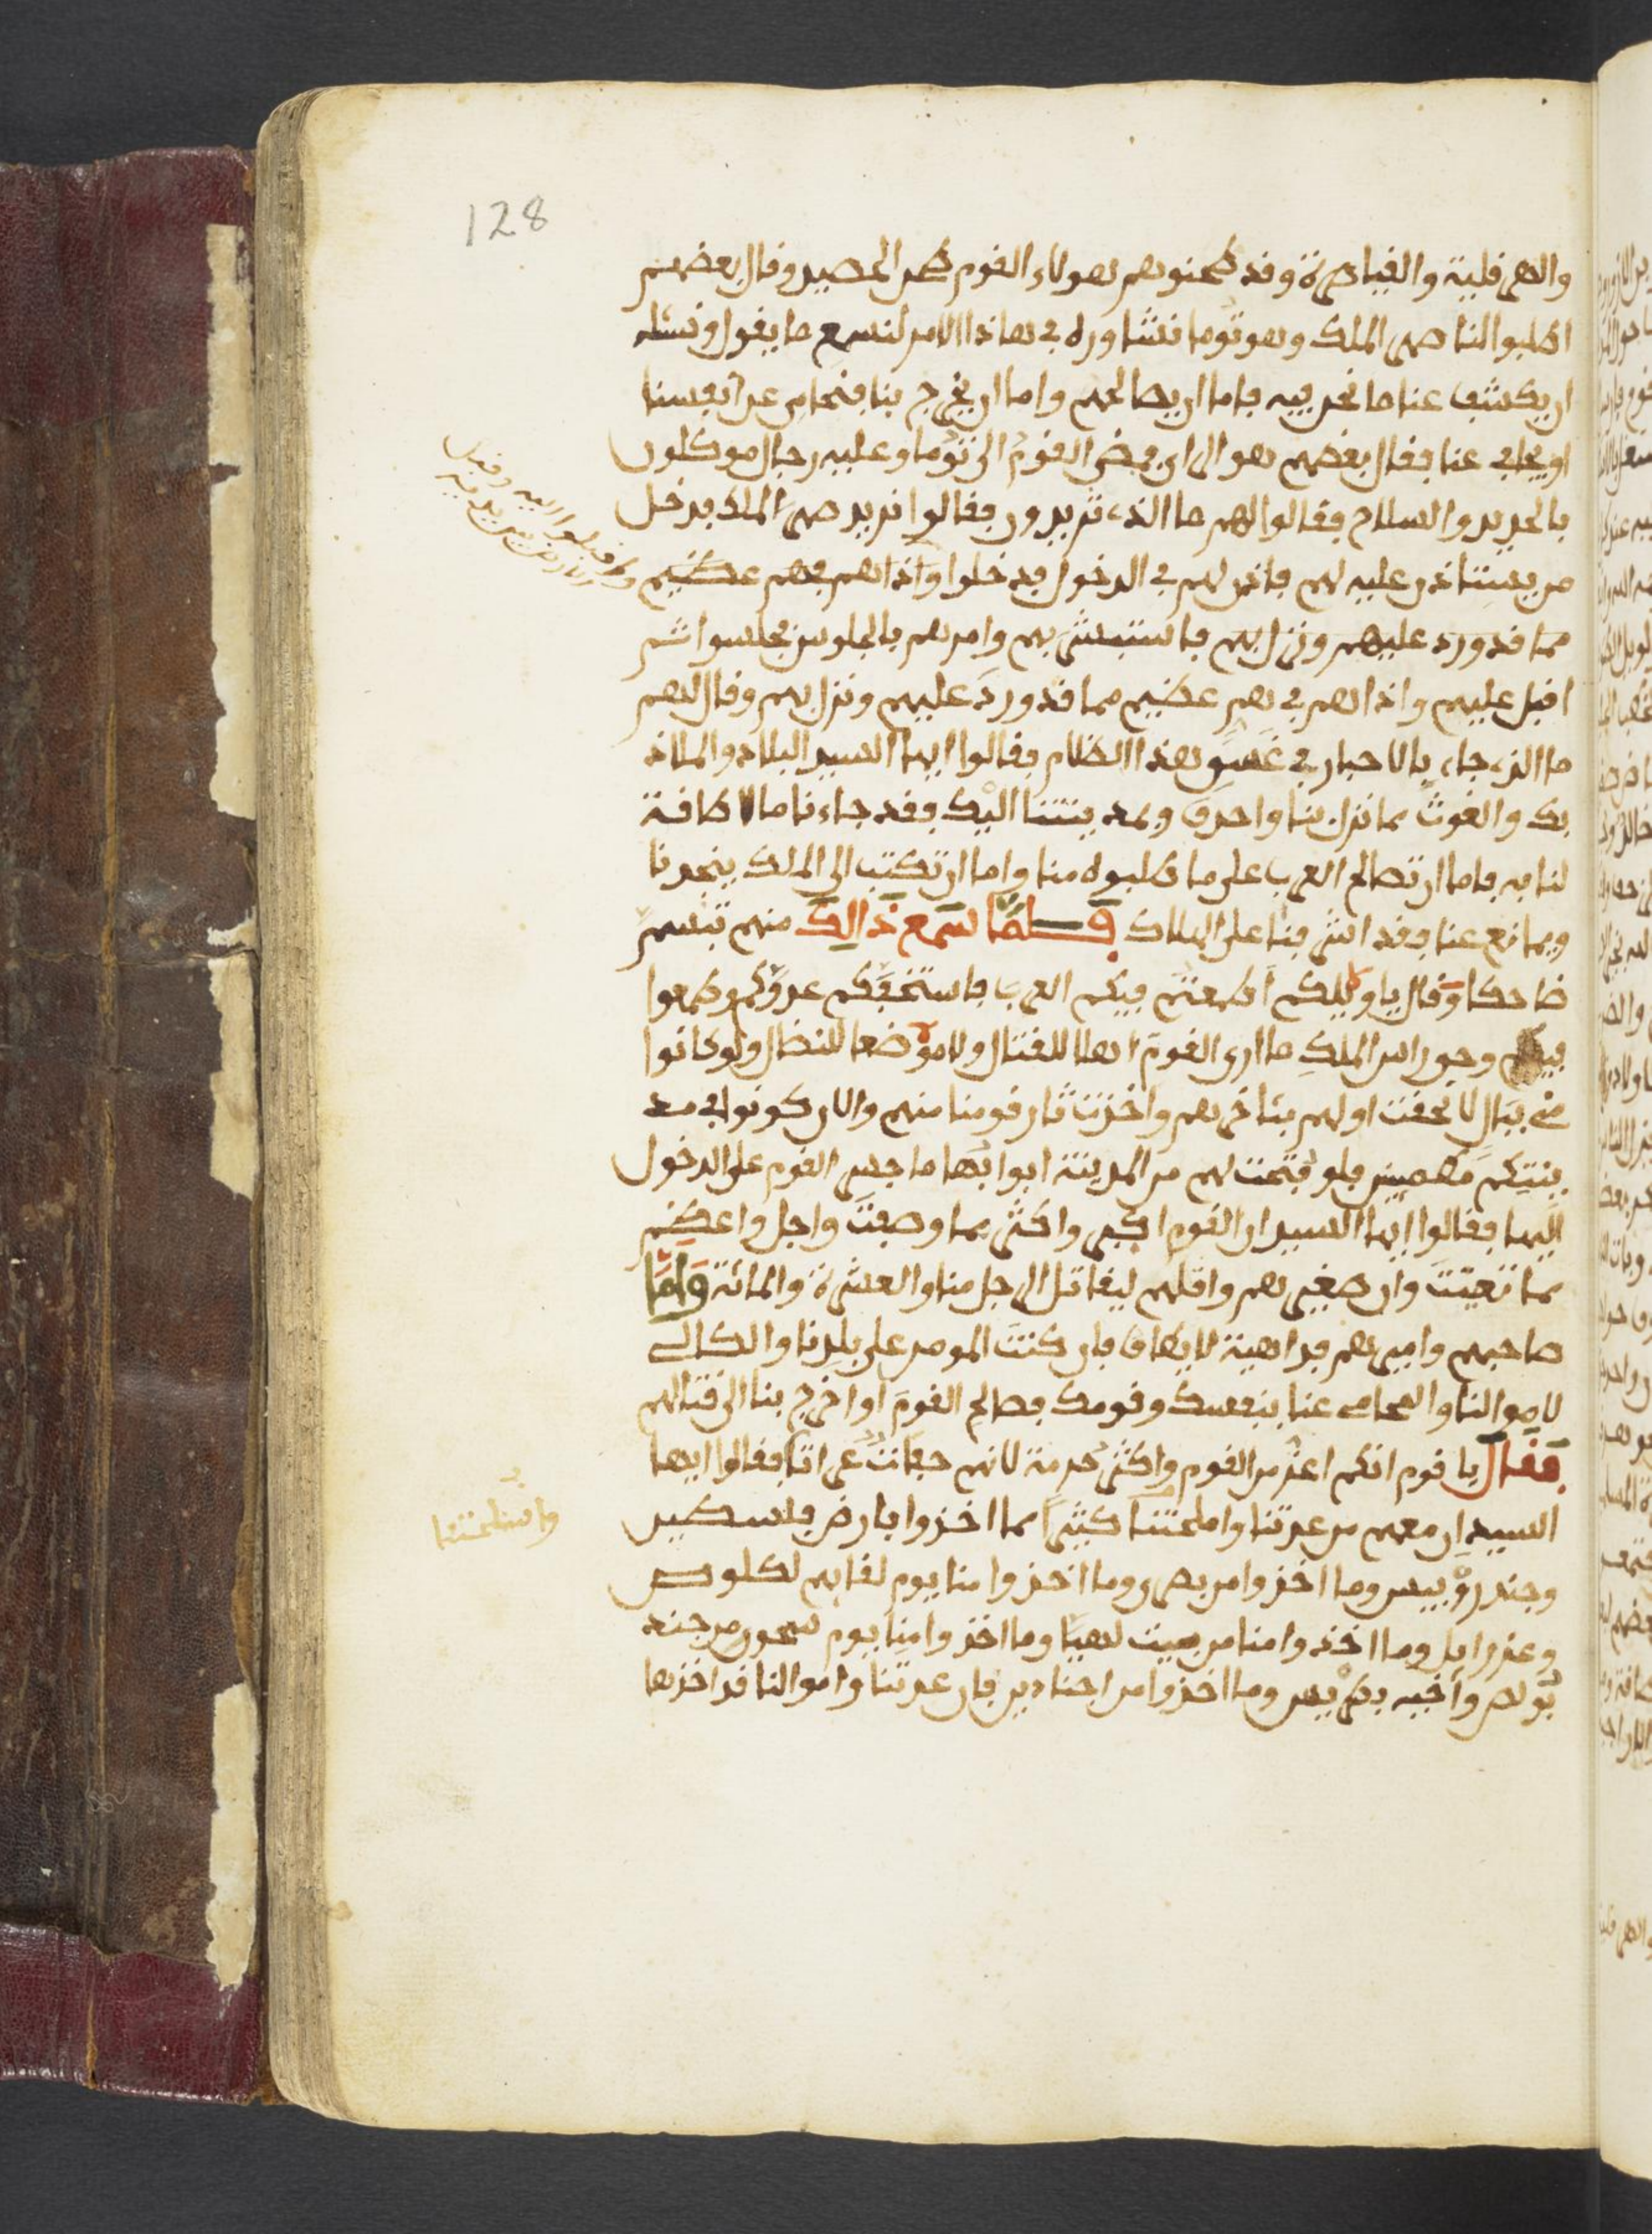 128
والهرقلية والقياصرة وقد طحنوهم هولاء القوم طحن الحصيد وقال بعضهم
اطلبوا لنا صهر الملك وهو توما نشاوره في هاذا الامر لنسمع ما يقول ونسئله
ان يكشف عنا ما نحن فيه فاما ان يصالحهم واما ان يخرج بنا فنحامي عن انفسنا
او يحامي عنا فقال بعضهم هو الراي فمضى القوم الى توما وعليه رجال موكلون
بالحديد والسلاح فقالوا لهم ما الذي تريدون فقالوا نريد صهر الملك فدخل
من يستاذن عليه لهم فاذن لهم في الدخول فدخلوا واذا هم في هم عظيم
مما قد ورد عليهم ونزل بهم فاستبشر بهم وامرهم بالجلوس فجلسوا ثم
اقبل عليهم واذا هم في هم عظيم مما قد ورد عليهم ونزل بهم وقال لهم
ما الذي جاء بالاحبار في غسو هذا الظلام فقالوا ايها السيد البلاد والملاذ
بك والغوث مما نزل بنا واحدق بمدينتنا اليك فقد جاءنا ما لا طاقة
لنا به فاما ان تصالح العرب على ما طلبوه منا واما ان تكتب الى الملك ينجدنا
ويمانع عنا فقد اشرفنا على الهلاك فلما سمع ذالك منهم تبسم
ضاحكا وقال يا ويلكم اطمعتم فيكم العرب فاستخفكم عدوكم وطمعوا
فيكم وحق راس الملك ما ارى القوم اهلا للقتال ولا موضعا للنضال ولو كانوا
مني ببال لالحقت اولهم بئاخرهم واخذت ثار قومنا منهم والان كونوا في مد
ينتكم مطمينين فلو فتحت لهم من المدينة ابوابها ما جسر القوم على الدخول
اليها فقالوا ايها السيد ان القوم اكبر واكثر مما وصفت واجل واعظم
مما نعتت وان صغيرهم واقلهم ليقاتل الرجل منا والعشرة والمائة واما
صاحبهم واميرهم فداهية لا يطاق فان كنت المومن على بلدنا والكالي
لاموالنا والمحامي عنا بنفسك وقومك فصالح القوم او اخرج بنا الى قتالهم
فقال يا قوم انكم اعز من القوم واكثر حرمة لانهم حفات عراتا فقالوا ايها
السيد ان معهم من عدتنا واملحتنا كثيرا مما اخذوا بارض فلسطين
وجند روبيس وما اخذوا من بصرى وما اخذوا منا يوم لقايهم لكلوص
وعزرايل وما اخذوا منا من بيت لهيا وما اخذوا منا يوم سحور من جند
بولص واخيه بطرس وما اخذوا من اجنادين فان عدتنا واموالنا قد اخذها
واسلحتنا